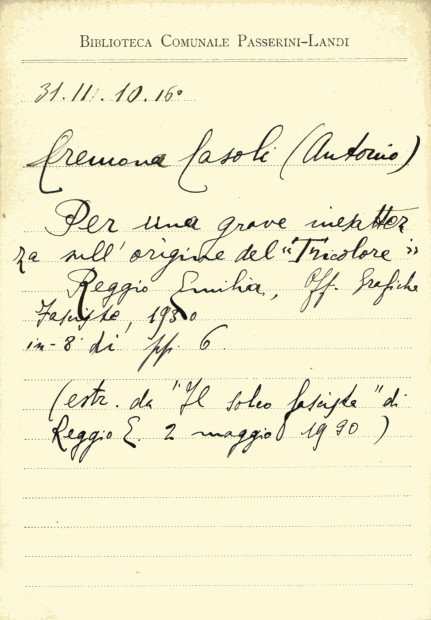 BIBLIOTECA COMUNALE PASSERINI-LANDI
31.II.10.16°
Cremona Casoli (Antonio)
Per una grave inesattez
za sull'origine del "Tricolore"
Reggio Emilia, Off. Grafiche
Fasciste, 1930
in-8° di pp 6.
(estr. da "Il solco fascista" di
Reggio E. 2 maggio 1930)